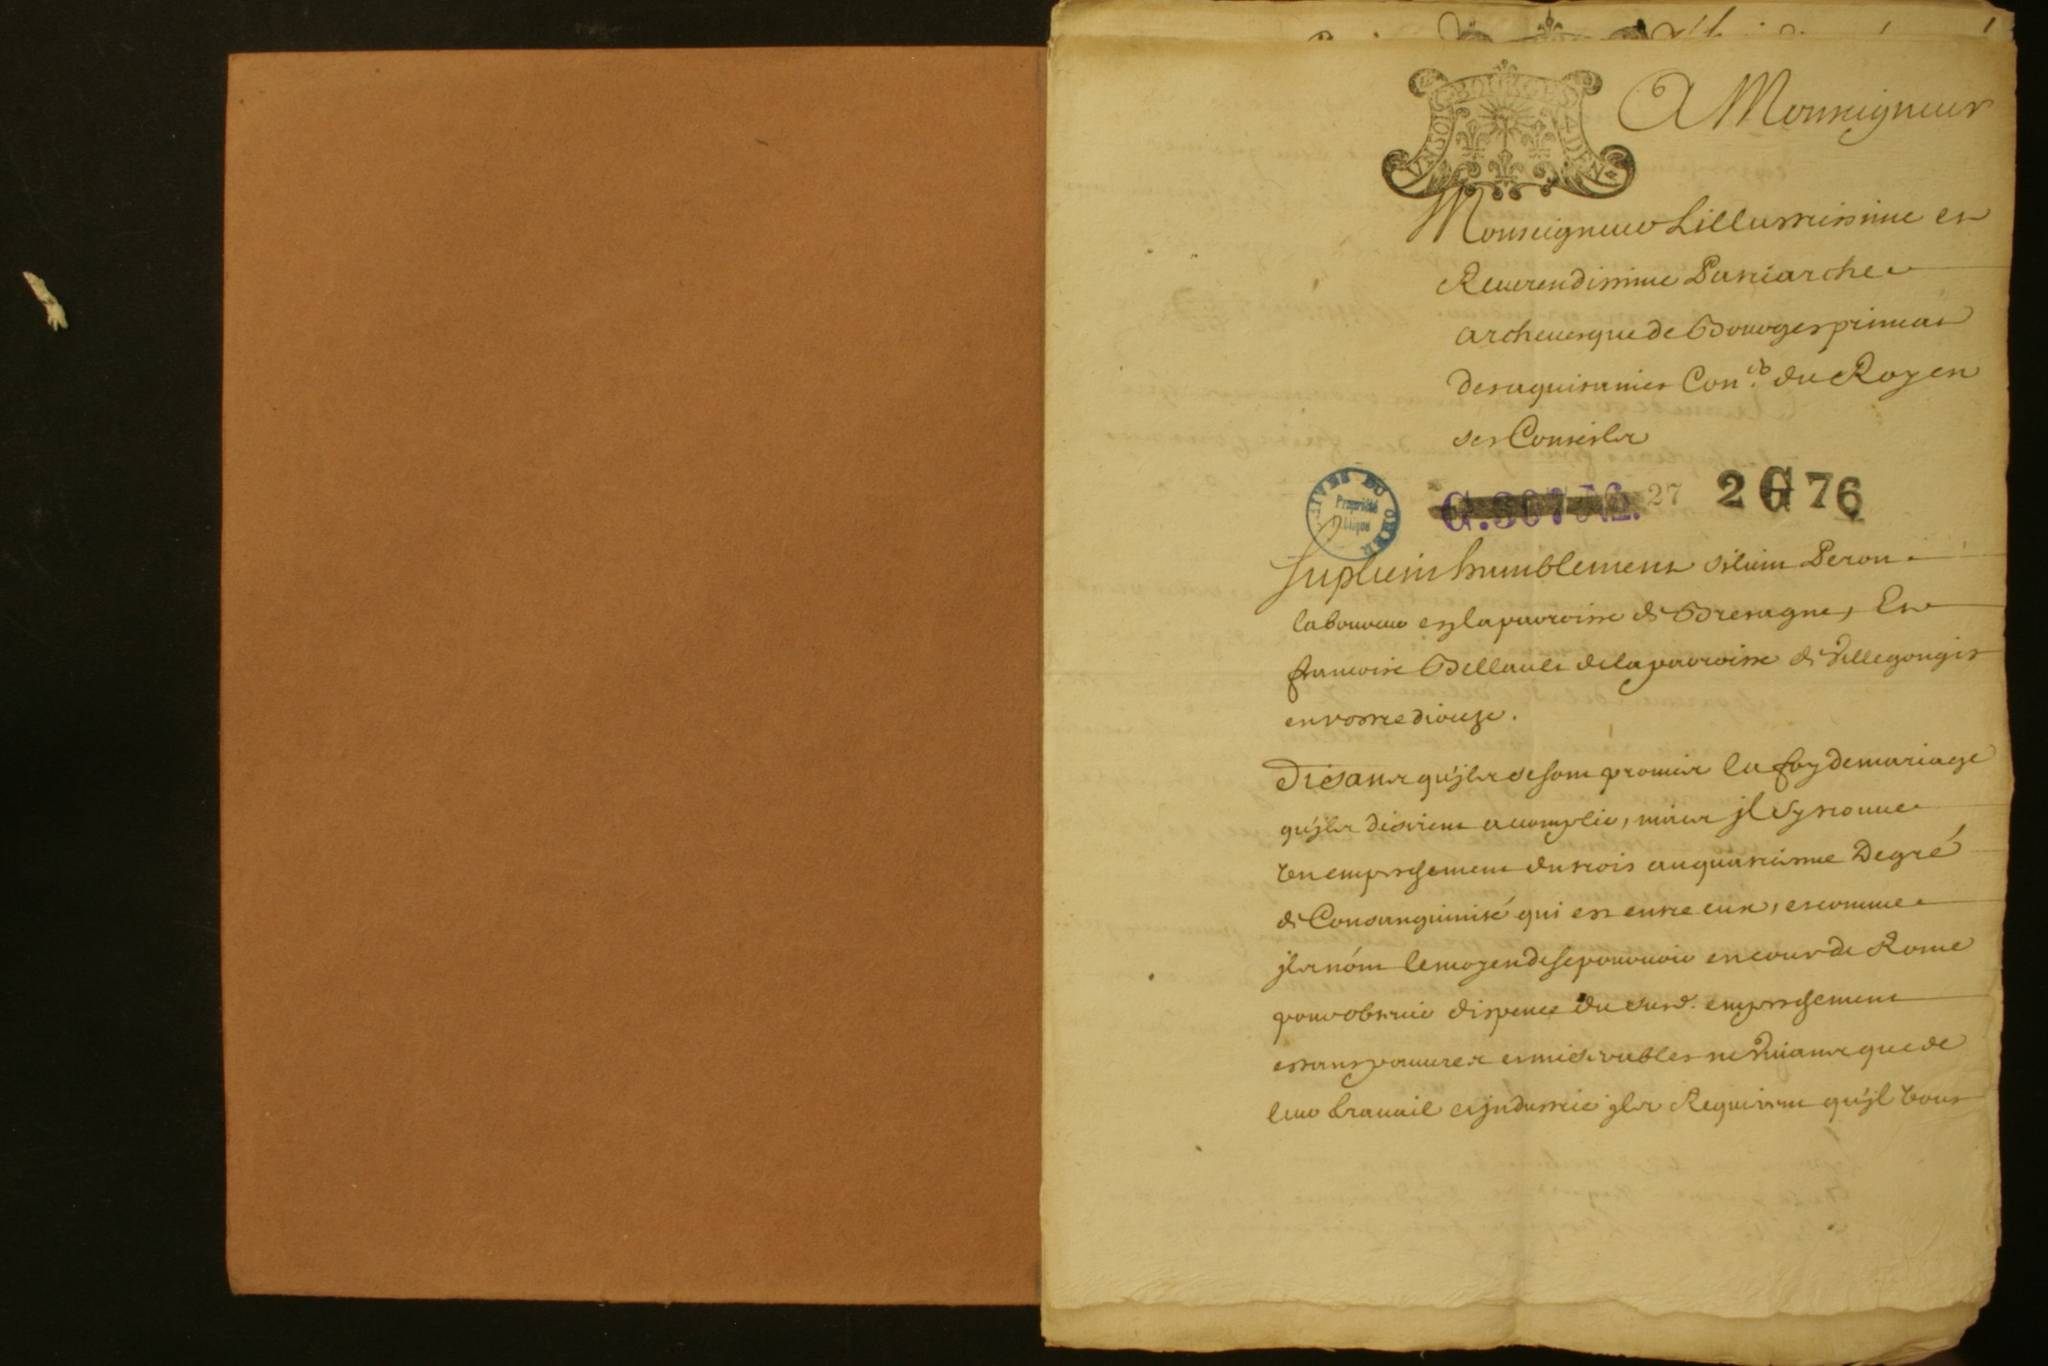 A Monseigneur
VN SOL BOURGES 4 DEN.
Monseigneur Lillustrissime et
Reuerendissime Patriarche
archeuesque de Bourges primat
des aquitaines Con.er du Roy en
ses Conseils
27 2 G 76
ARCHIVES DU CHER
Propriété
Publique
Suplient humblement Siluin Peron
laboureur en la parroisse de Bretagne, Et
francoise Bellault de la parroisse de Villegongis
en vostre diocese.
Disant qu'jls se sont promis la foy de mariage
qu'jls desirent acomplir, mais jl sy trouue
vn empeschement du trois au quatriesme Degré
de Consanguinité qui est entre eux, et comme
jls n'ont le moyen de se pouruoir en cour de Rome
pour obtenir dispence du susd. empeschement
estans pauures et miserables ne viuans que de
leur trauail et jndustrie jls Requierent qu'jl vous